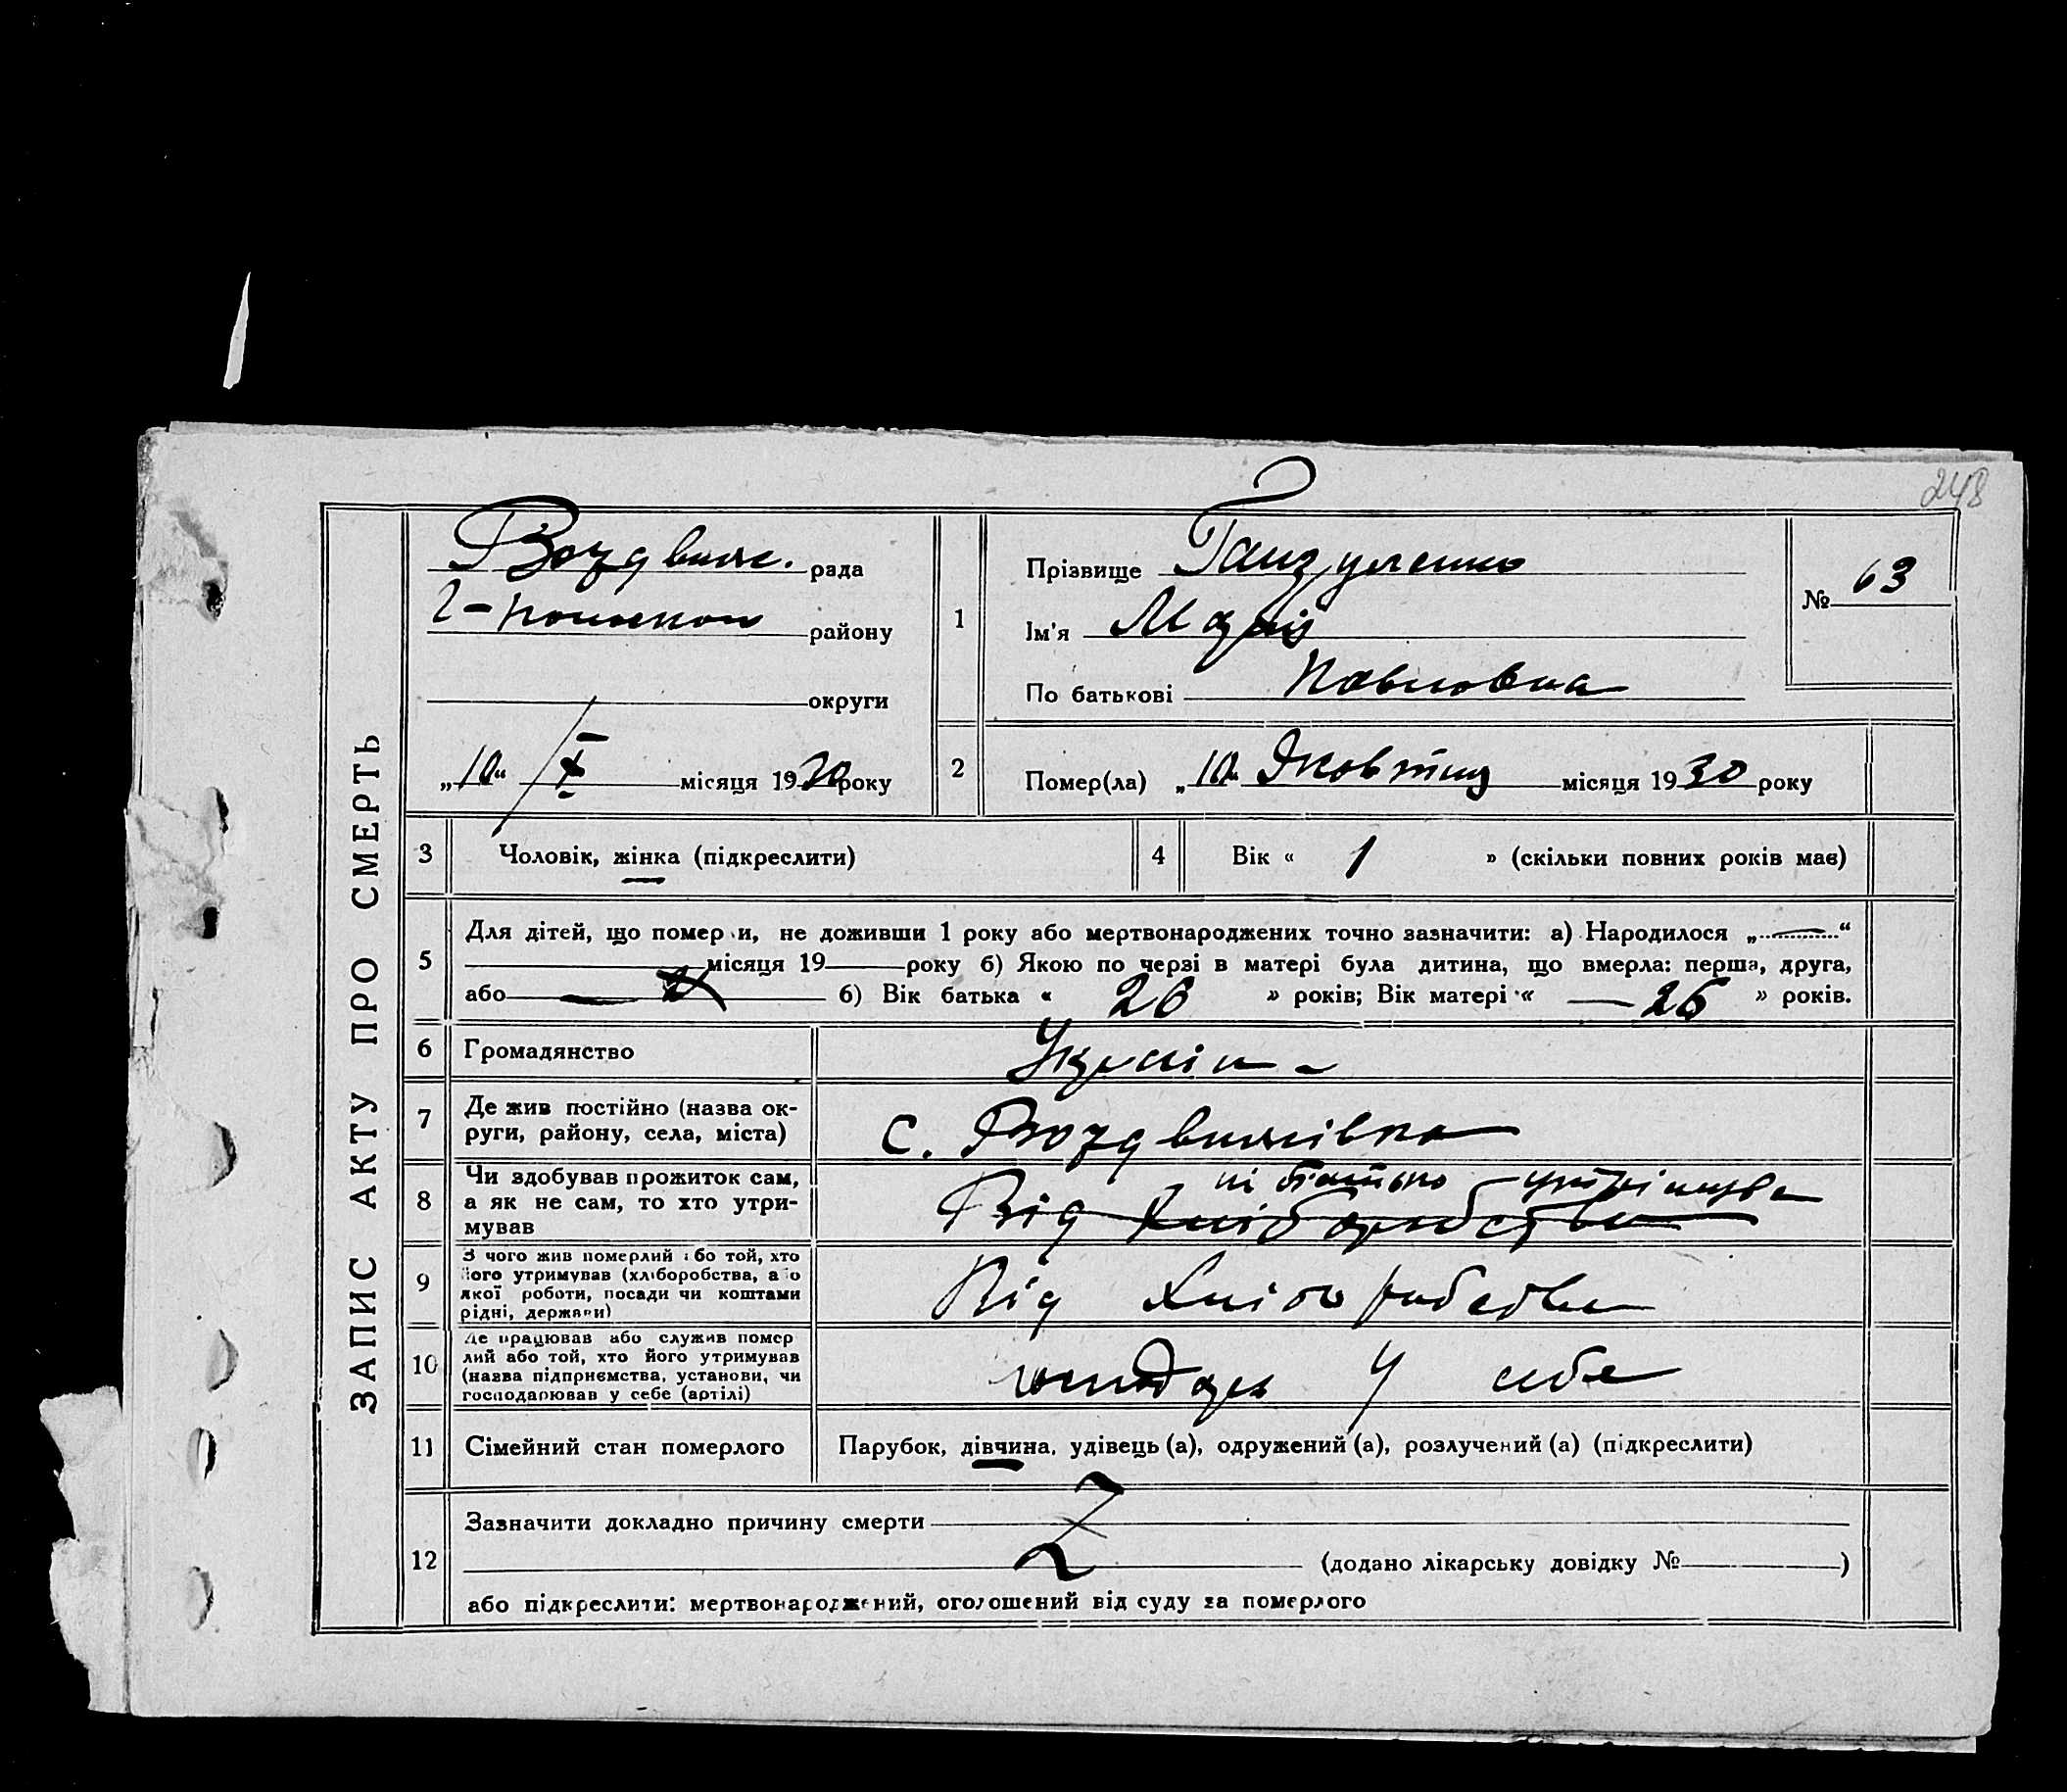 248
ЗАПИС АКТУ ПРО СМЕРТЬ
Воздвиж. рада
району
округи
„10“ X місяця 1930 року
1
Прізвище
Ім'я Марія
По батькові Павловна
№ 63
2
Помер(ла) „10“ Жовтня місяця 1930 року
3
Чоловік, жінка (підкреслити)
4
Вік « 1 » (скільки повних років має)
5
Для дітей, що померли, не доживши 1 року або мертвонароджених точно зазначити: а) Народилося „ “
місяця 19 року б) Якою по черзі в матері була дитина, що вмерла: перша, друга,
або б) Вік батька « 26 » років; Вік матері « 26 » років.
6
Громадянство
7
Де жив постійно (назва ок-
руги, району, села, міста)
с. Воздвижівка
8
Чи здобував прожиток сам,
а як не сам, то хто утри-
мував
батько
Від
9
З чого жив померлий або той, хто
його утримував (хліборобства, або
якої роботи, посади чи коштами
рідні, держави)
Від Хліборобства
10
Де працював або служив помер
лий або той, хто його утримував
(назва підприємства, установи, чи
господарював у себе (артілі)
у себе
11
Сімейний стан померлого
Парубок, дівчина, удівець (а), одружений (а), розлучений (а) (підкреслити)
12
Зазначити докладно причину смерти
(додано лікарську довідку № )
або підкреслити: мертвонароджений, оголошений від суду за померлого